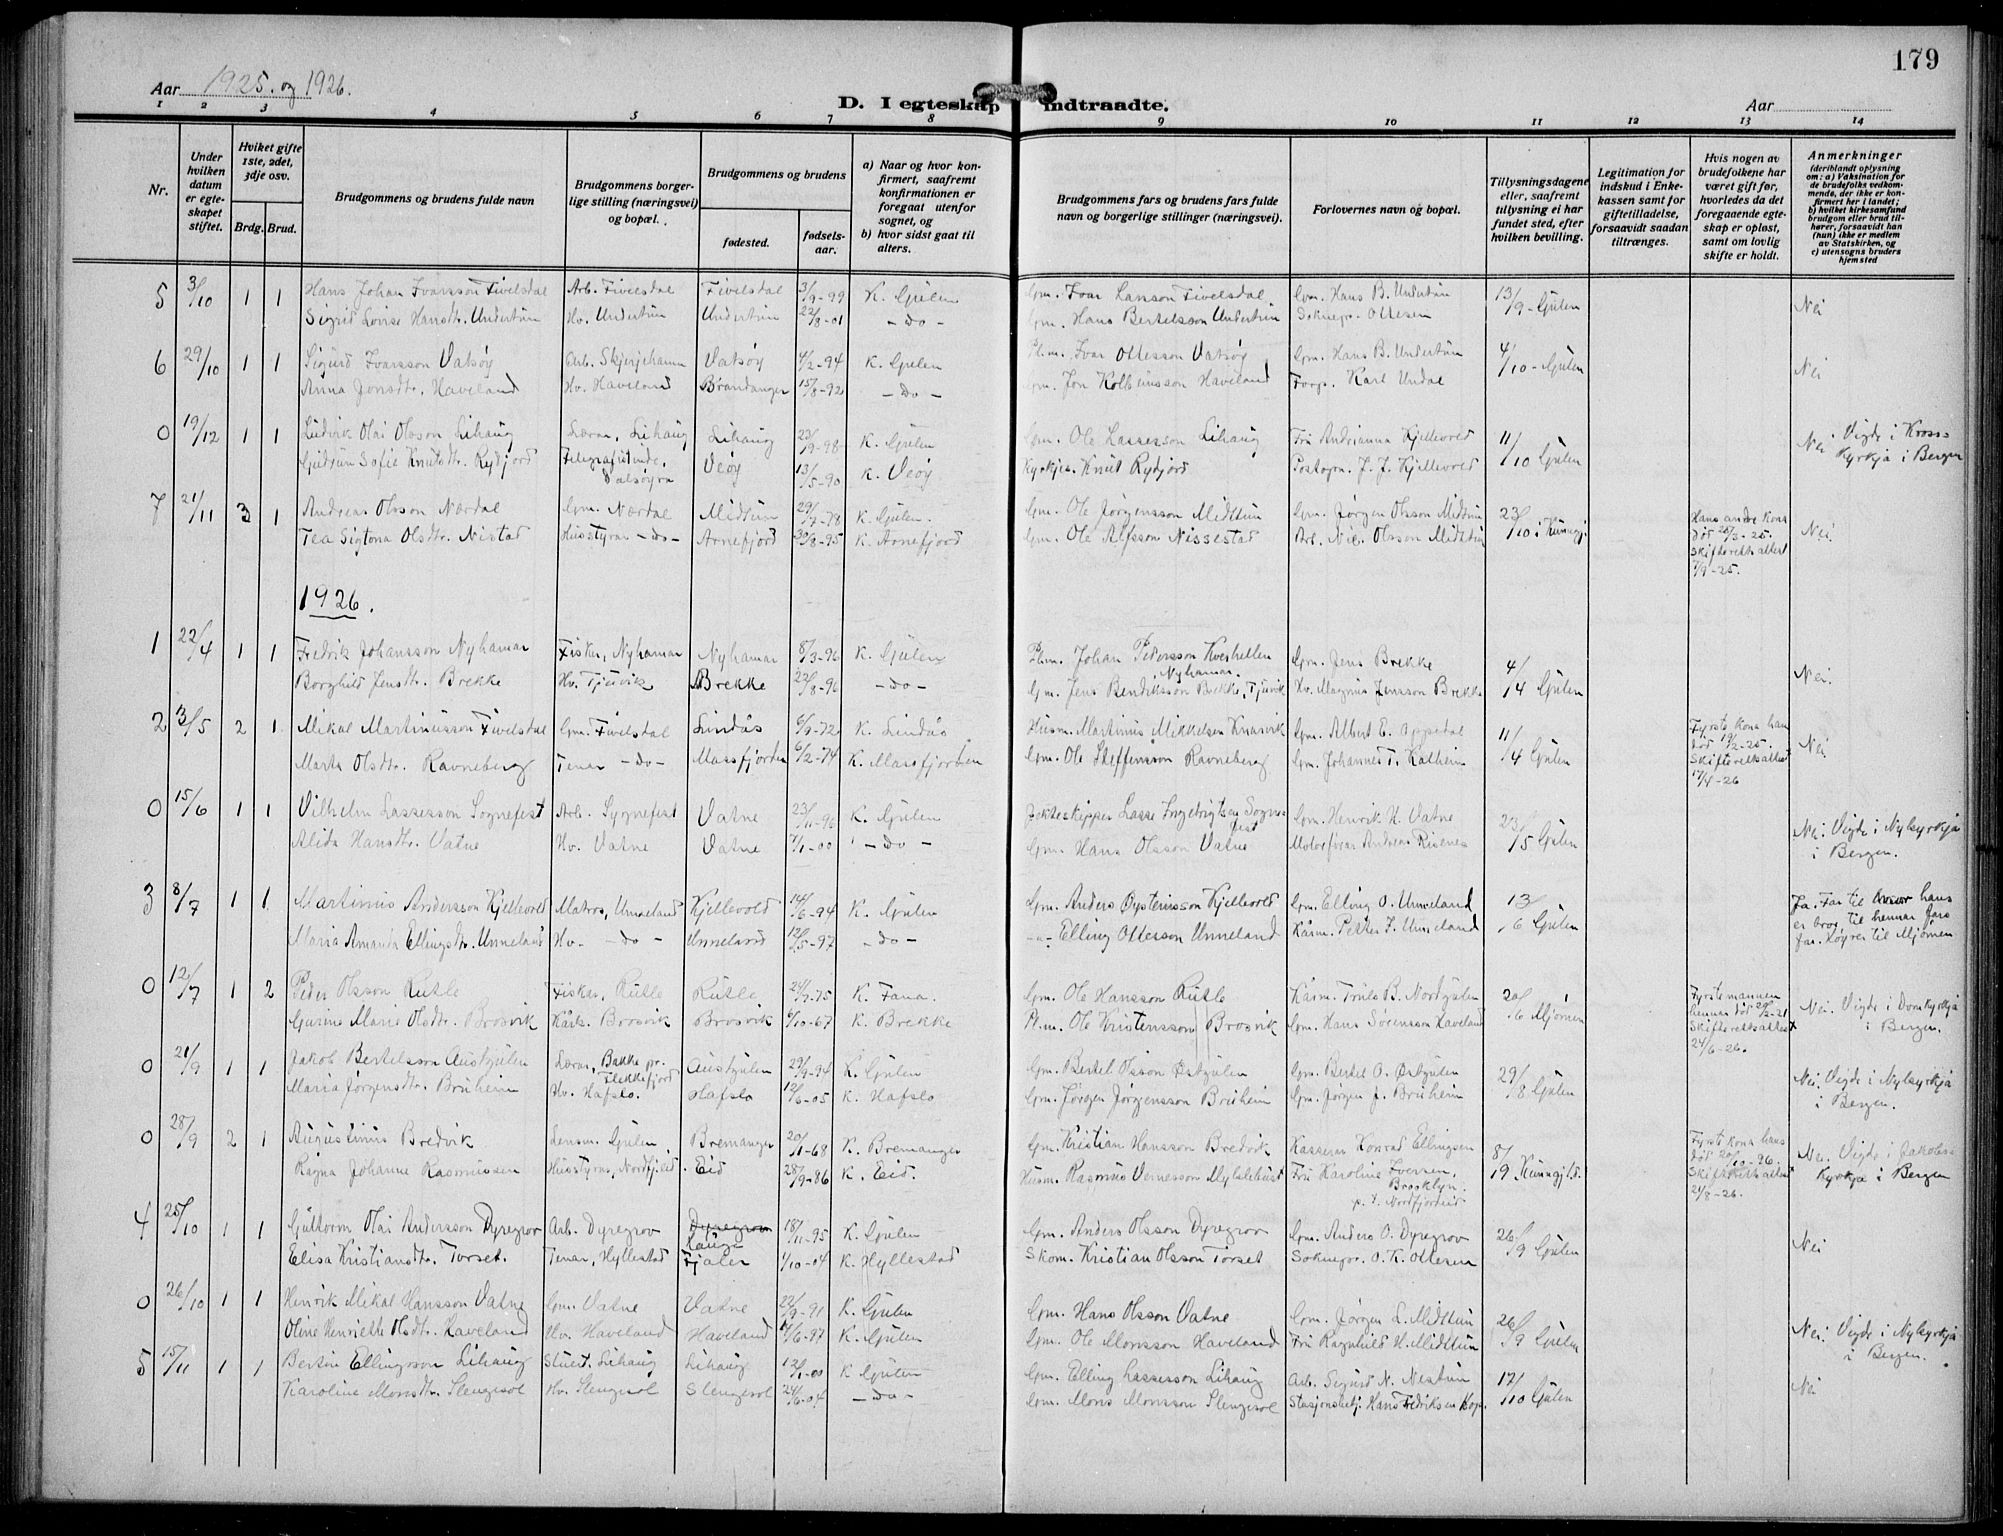 179
Aar 1925. og 1926.
D. I egteskap indtraadte.
Aar
1 2 3 4 5 6 7 8 9 10 11 12 13 14
Nr.
Under hvilken datum er egteskapet stiftet.
Hviket gifte 1ste, 2det, 3dje osv.
Brdg. Brud.
Brudgommens og brudens fulde navn
Brudgommens borgerlige stilling (næringsvei) og bopæl.
Brudgommens og brudens
fødested.
fødselsaar.
a) Naar og hvor konfirmert, saafremt konfirmationen er foregaat utenfor sognet, og
b) hvor sidst gaat til alters.
Brudgommens fars og brudens fars fulde navn og borgerlige stillinger (næringsvei).
Forlovernes navn og bopæl.
Tillysningsdagene eller, saafremt tillysning ei har fundet sted, efter hvilken bevilling.
Legitimation for indskud i Enkekassen samt for giftetilladelse, forsaavidt saadan tiltrænges.
Hvis nogen av brudefolkene har været gift før, hvorledes da det foregaaende egteskap er opløst, samt om lovlig skifte er holdt.
Anmerkninger (deriblandt oplysning om: a) Vaksination for de brudefolks vedkommende, der ikke er konfirmert her i landet; b) hvilket kirkesamfund brudgom eller brud tilhører, forsaavidt han (hun) ikke er medlem av Statskirken, og c) utensogns bruders hjemsted
5 3/10 1 1 Hans Johan Ivarsson Fivelsdal Arb. Fivelsdal Fivelsdal 3/9-99 K. Gulen Gm. Ivar Larsson Fivelsdal. Gm. Hans B. Undertun 13/9 - Gulen Nei
Sigrid Lovise Hansdtr. Undertun Hv. Undertun Undertun 22/8-01 - Do - Gm. Hans Bertelsson Undertun Soknepr. Ottesen
6 29/10 1 1 Sigurd Ivarsson Vatsøy Arb. Skjerjehamn Vatsøy 4/2-94 K. Gulen Pl.m. Ivar Ottesson Vatsøy Gm. Hans B. Undertun 4/10 - Gulen Nei
Anna Jonsdtr. Haveland Hv. Haveland Brandanger 15/8-92 - Do - Gm. Jon Kolbeinsson Haveland Forp. Karl Undal
0 19/12 1 1 Ludvik Olai Olsson Lihaug Lærar, Lihaug Lihaug 23/9-98 K. Gulen Gm. Ole Lassesson Lihaug Fru Andrianna Kjellevold 11/10 Gulen Nei Vigde i Kross-
Gudrun Sofie Knutsdtr. Rydjord Telegrafistinde, Dalsøyra Veøy 13/5-90 K. Veøy Kyrkjes. Knut Rydjord Postopn. J. J. Kjellevold kyrkja i Bergen
7 21/11 3 1 Andreas Olsson Nærdal Gm. Nærdal Midttun 29/7-78 K. Gulen. Gm. Ole Jørgensson Midttun Gm. Jørgen Olsson Midttun 23/10 i Kunngj. Hans andre kona
Tea Sigtona Olsdtr. Nistad Husstyrar - Do - Arnefjord 30/8-95 K. Arnefjord Gm. Ole Alfsson Nissestad Arb. Nils Olsson Midttun død 20/3-25. Nei.
Skifterettsattest
7/9-25.
1926.
1 22/4 1 1 Fredrik Johansson Nyhamar Fiskar, Nyhamar Nyhamar 8/3-96 K. Gulen Pl.m. Johan Pedersson Kveshellen, Nyhamar. Gm. Jens Brekke 4/ Nei.
Borghild Jensdtr. Brekke Hv. Tjuvik Brekke 22/8-96 - Do - Gm. Jens Bendiksson Brekke, Tjuvik Hv. Magnus Jensson Brekke 14 Gulen
2 3/5 2 1 Mikal Martinusson Fivelsdal Gm. Fivelsdal Lindås 6/9-72 K. Lindås Husm. Martinus Mikkelsen Knarvik Gm. Albert E. Oppedal 11/ Fyrste kona hans
Marta Olsdtr. Ravneberg Tenar - Do - Massfjorden 6/2-74 K. Massfjorden Gm. Ole Steffensson Ravneberg Gm. Johannes T. Kalheim 4 Gulen død 19/2-25. Nei
Skifterettsattest
17/4-26
0 15/6 1 1 Vilhelm Lassesson Sognefest Arb. Sygnefest Vatne 23/11-96 K. Gulen Jakteskipper Lasse Ingebrigtsen Sognefest Gm. Henrik H. Vatne 23/ Nei. Vigde i Nykyrkja
Alida Hansdtr. Vatne Hv. Vatne Vatne 7/1-00 - Do - Gm. Hans Olsson Vatne Motorførar Andreas Risnes 5 Gulen i Bergen.
3 8/7 1 1 Martinus Andersson Kjellevold Matros, Unneland Kjellevold 14/6-94 K. Gulen Gm. Anders Øysteinsson Kjellevold Gm. Elling O. Unneland 13/ Ja. Far til hans
Maria Amanda Ellingsdtr. Unneland Hv. - Do - Unneland 12/5-97 - Do - - " - Elling Ottesson Unneland Kårm. Petter J. Unneland 6 Gulen er bror til hennar fars
far. Høyrer til Mjømen
0 12/7 1 2 Peder Olsson Rutle Fiskar, Rutle Rutle 24/7-75 K. Fana. Gm. Ole Hansson Rutle Kårm. Truls B. Nordgulen 20/ Fyrste mannen Nei. Vigde i Domkyrkja
Gurine Marie Olsdtr. Brosvik Kårk. Brosvik Brosvik 6/10-67 K. Brekke Pl.m. Ole Kristensson Brosvik Gm. Hans Sørensson Haveland 6 Mjømen hennar død 20/2-21 i Bergen.
Skifterettsattest
24/6-26.
0 21/9 1 1 Jakob Bertelsson Austgulen Lærar, Bakke pr. Flekkefjord Austgulen 29/9-94 K. Gulen Gm. Bertel Olsson Østgulen Gm. Bertel O. Østgulen 29/ Nei. Vigde i Nykyrkja
Maria Jørgensdtr. Bruheim Hv. Hafslo. Hafslo 12/6-05 K. Hafslo Gm. Jørgen Jørgensson Bruheim Gm. Jørgen J. Bruheim 8 Gulen i Bergen.
0 28/9 2 1 Augustinus Bredvik Lensm. Gulen Bremanger 20/1-68 K. Bremanger Gm. Kristian Hansson Bredvik Kasserar Konrad Ellingsen 8/ Fyrste kona hans Nei. Vigde i Jakobs-
Ragna Johanne Rasmussen Husstyrar, Nordfj.eid. Eid 28/9-86 K. Eid. Husm. Rasmus Vernesson Myklebust Fru Karoline Iversen, Brooklyn. p.t. Nordfjordeid 19 Kunngjld. død 20/10-96. kyrkja i Bergen
Skifterettsattest
21/8-26.
4 25/10 1 1 Guttorm Olai Andersson Dyregrov Arb. Dyregrov Dyregrov Hauge 18/11-95 K. Gulen Gm. Anders Olsson Dyregrov Gm. Anders O. Dyregrov 26/ Nei
Elisa Kristiansdtr. Torset. Tenar, Hyllestad Fjaler 1/10-04 K. Hyllestad Skom. Kristian Olsson Torset Soknepr. O. K. Ottesen 9 Gulen
0 26/10 1 1 Henrik Mikal Hansson Vatne Gm. Vatne Vatne 22/9-91 K. Gulen Gm. Hans Olsson Vatne Gm. Jørgen L. Midttun 26/ Nei. Vigde i Nykyrkja
Oline Henriette Olsdtr. Haveland Hv. Haveland Haveland 1/6-97 K. Gulen Gm. Ole Monsson Haveland Fru Ragnhild H. Midttun 9 Gulen i Bergen.
5 15/11 1 1 Bertin Ellingsson Lihaug Stuert. Lihaug Lihaug 12/1-00 K Gulen Gm. Elling Lassesson Lihaug Arb. Sigurd N. Nestun 12/ Nei
Karoline Monsdtr. Slengesol Hv. Slengesol Slengesol 24/6-04 - Do - Gm. Mons Monsson Slengesol Stasjonsbetj. Hans Fredriksen Kop. 10 Gulen